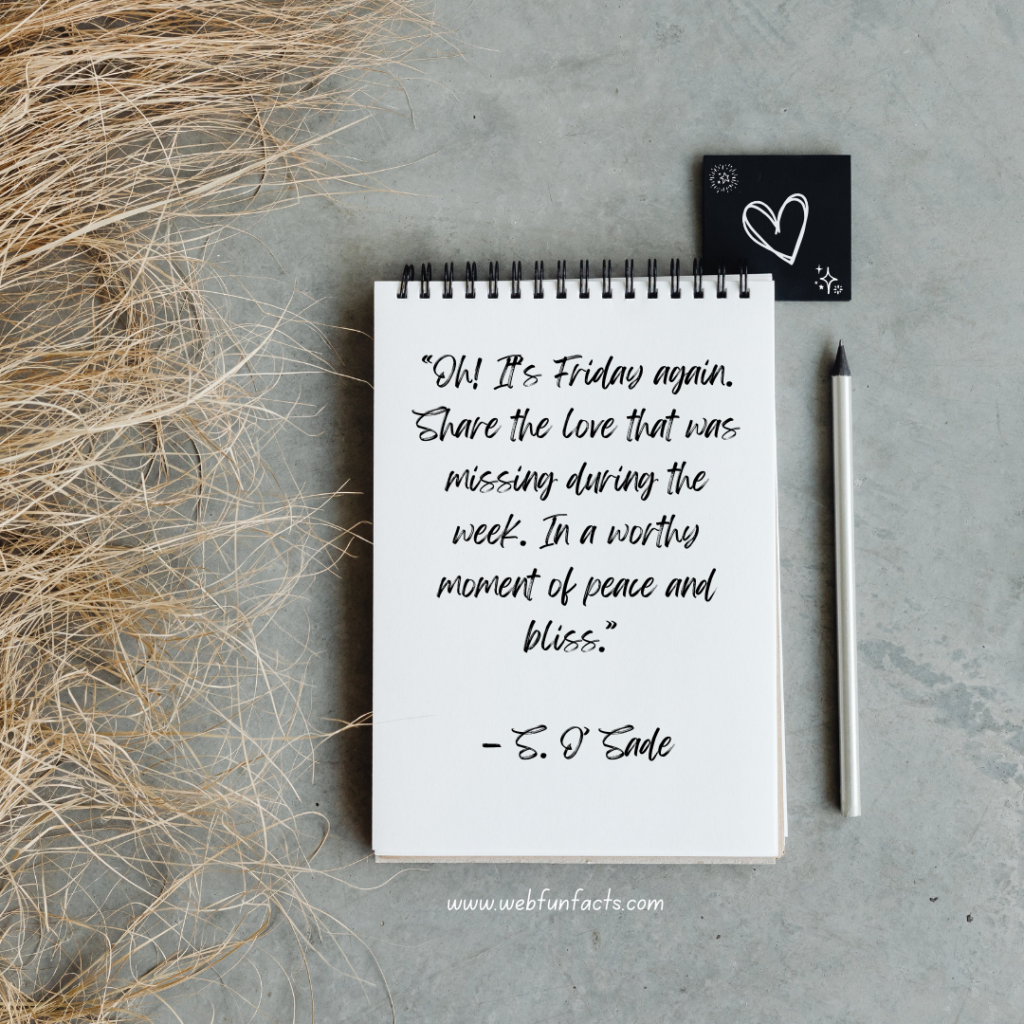 “Oh! It's Friday again.
Share the love that was
missing during the
week. In a worthy
moment of peace and
bliss.”
- S. O' Sade
www.webfunfacts.com